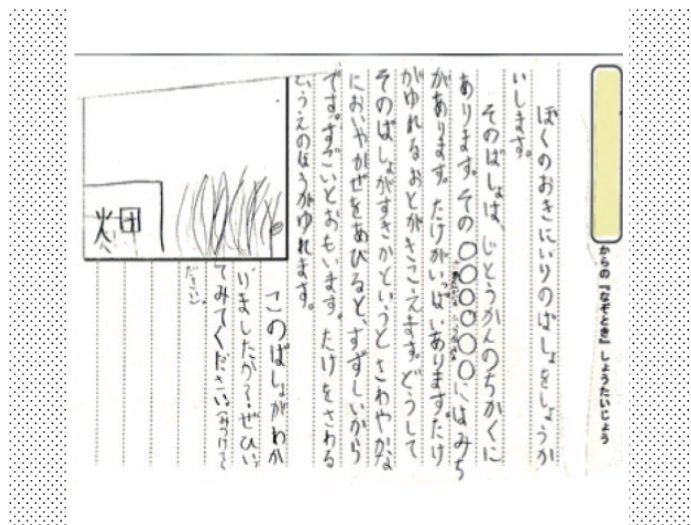 からの『なぞとき』しょうたいじょう
ぼくのおきにいりのばしょをしょうか
いします。
そのばしょは、じどうかんのちかくに
あります。その〇〇〇〇〇〇にはみち
があります。たけがいっぱいあります。たけ
がゆれるおとがきこえます。どうして
そのばしょがすきかというとさわやかな
においやかぜをあびると、すずしいから
です。すごいとおもいます。たけをさわる
とうえのほうがゆれます。
このばしょがわか
りましたか?ぜひい
てみてください。(みつけて
ださい)。
畑